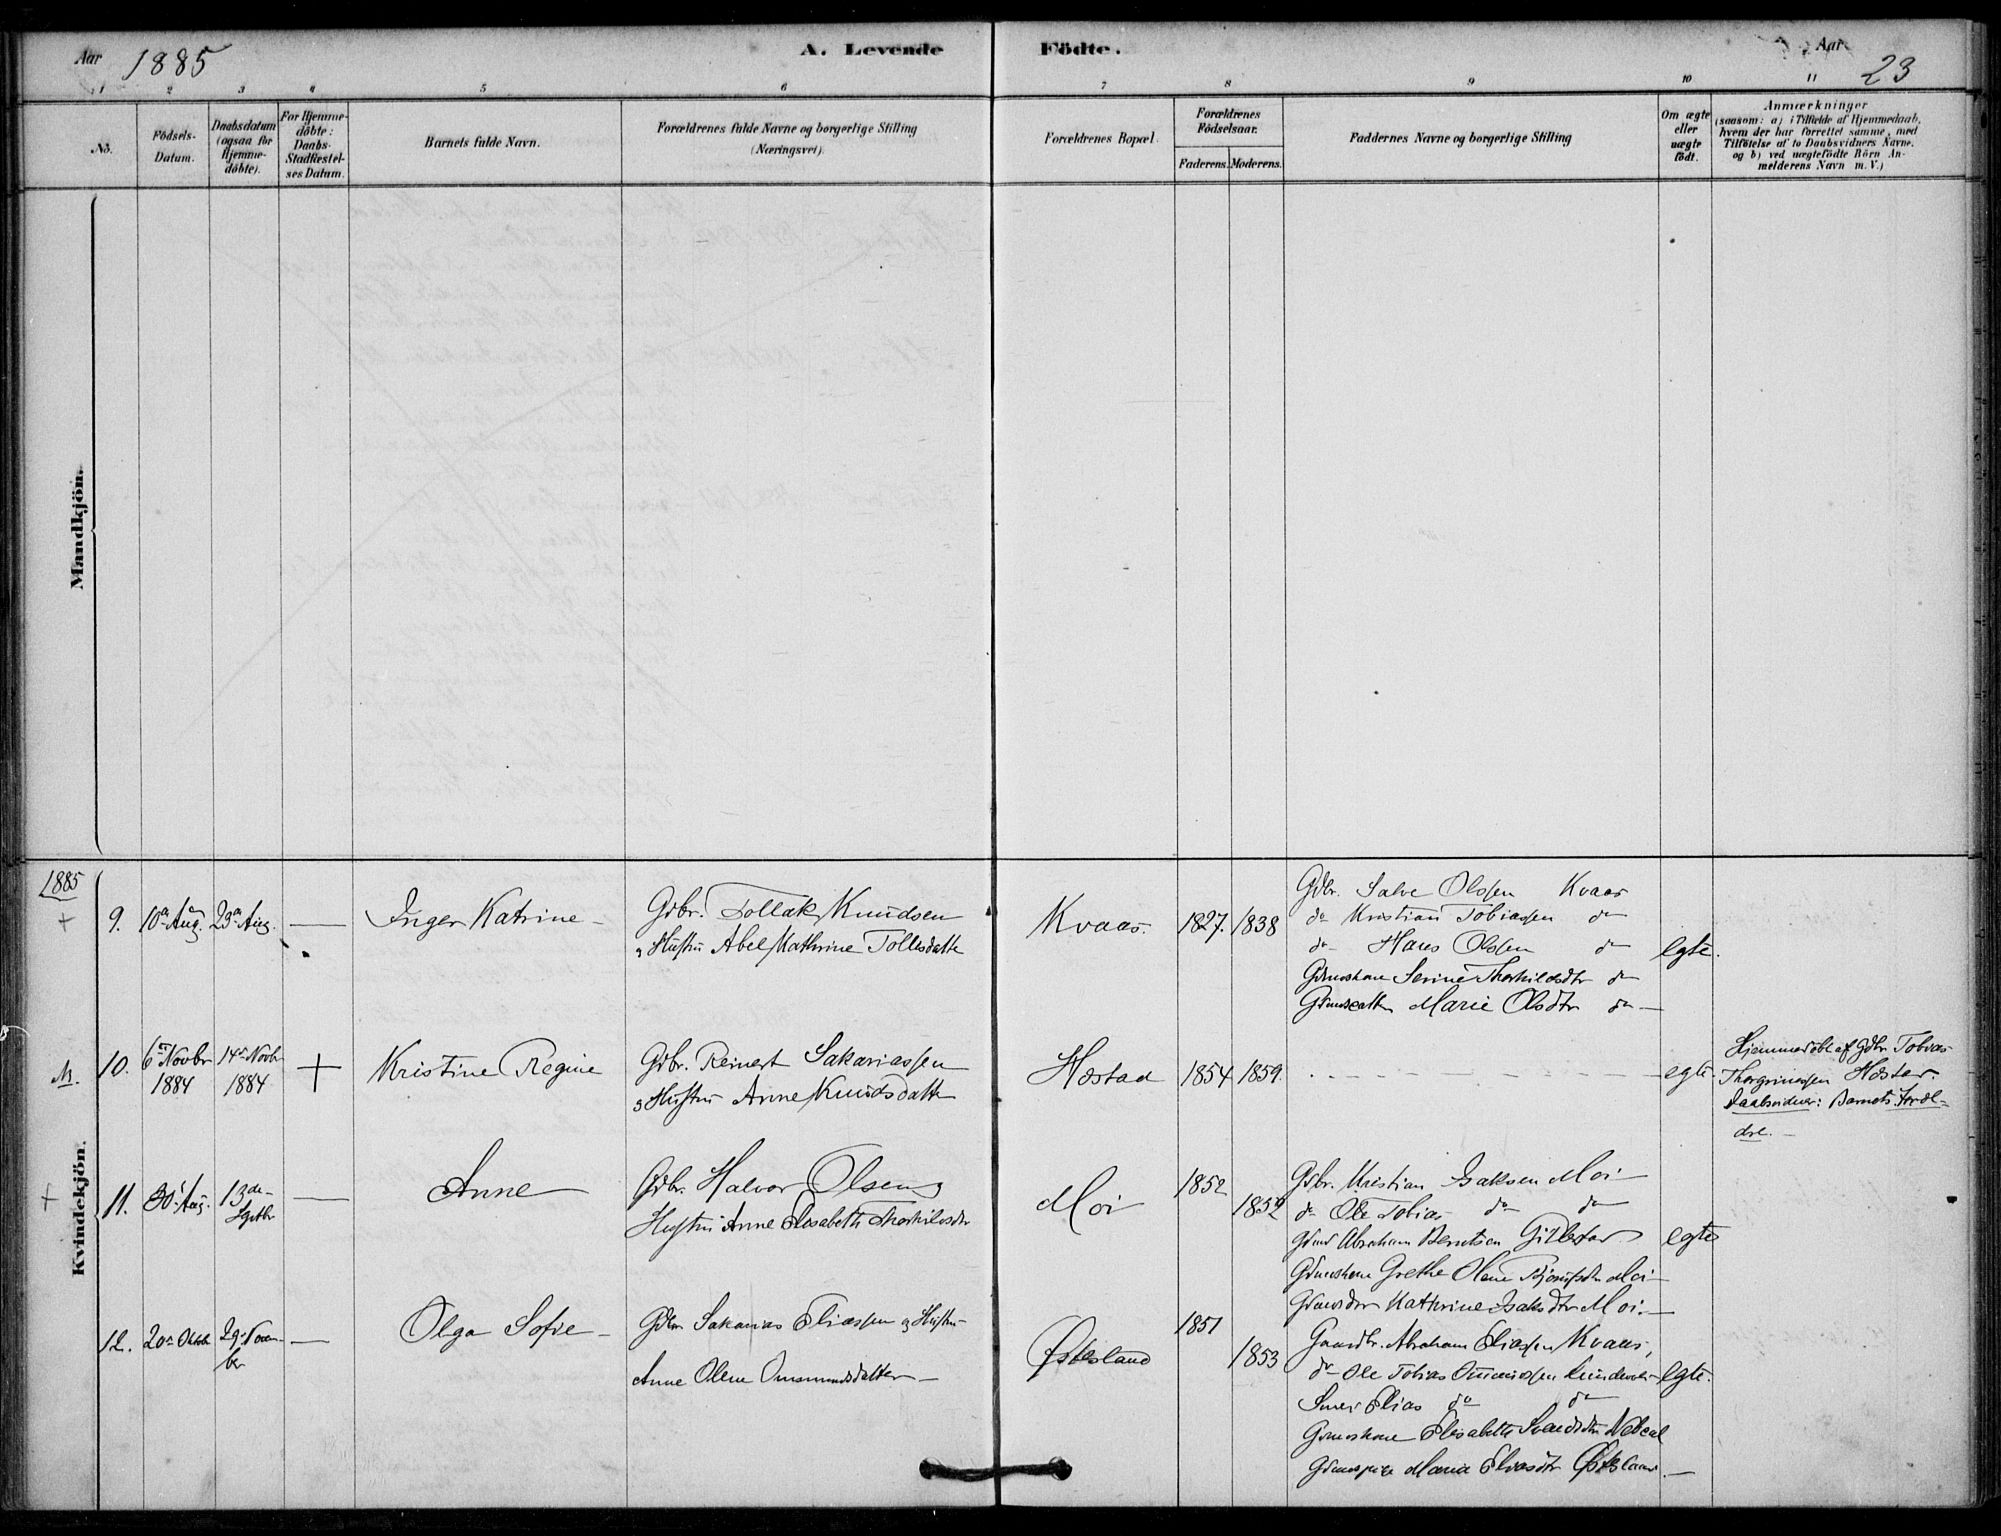 Aar 1885
A. Levende Födte.
Aar
23
1 2 3 4 5 6 7 8 9 10 11
No.
Födsels-Datum.
Daabsdatum (ogsaa for Hjemme-döbte).
For Hjemme-döbte: Daabs-Stadfæstel-ses Datum.
Barnets fulde Navn.
Forældrenes fulde Navne og borgerlige Stilling (Næringsvei).
Forældrenes Bopæl.
Forældrenes Födselsaar.
Faderens. Moderens.
Faddernes Navne og borgerlige Stilling
Om ægte eller uægte födt.
Anmærkninger (saasom: a) i Tilfælde af Hjemmedaab, hvem der har forrettet samme, med Tilföielse af to Daabsvidners Navne. og b) ved uægtefödte Börn Anmelderens Navn m. V.)
Mandkjön.
Kvindekjön.
1885
+
9. 10de Aug. 23de Aug. —
Inger Katrine —
Gdbr. Tollak Knudsen
og Hustru Abel Kathrine Tollesdatter
Kvaas. 1827. 1838
Gdbr. Salve Olssen Kvaas
do Kristian Tobiassen do
do Hans Olssen do
Gdmskone Serine Thorkildsdtr do
Marie Olsdtr do —
egte.
M.
10. 6te Novbr 1884
14de Novbr 1884
+
Kristine Regine
Gdbr. Reinert Sakariassen
og Hustru Anne Knudsdatter
Hæstad 1854 1859.
egte.
Hjemmedøbt af Gdbr. Tobias
Thorgrimssen Hæstad.
Daabsvidner: Barnets Foræl-
dre. —
+
11. 30. Aug. 13de Septbr —
Anne
Gdbr. Halvor Olsen og
Hustru Anne Elisabeth Thorkildsdtr
Moi
1852
1852
Gdbr. Kristian Isaksen Moi
do Ole Tobias do do
Gdmd Abraham Berntsen Gitlestad
Gdmskone Grethe Olene Moi
Gdmsdtr Kathrine Isaksdtr Moi. —
egte
12. 20de Oktob. 29. Novem-
ber
—
Olga Sofie —
Gdbr Sakarias Eliassen og Hustru
Anne Olene Omsmundsdatter —
Østesland
1851
1853
Gaardbr. Abraham Eliassen Kvaas,
do Ole Tobias
Elias do do
Gdmskone Elisabeth
Maria Eliasdtr Østesland. —
egte.